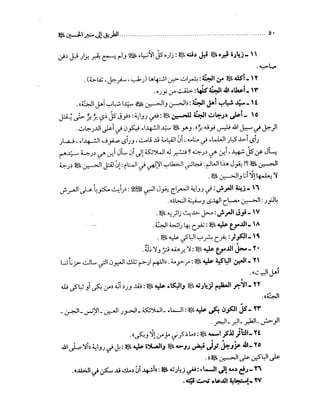 ٥٠ ........ الطريق إلى منبر الحسين ﷺ
١١ - زيارة قبره ﷺ قبل دفنه ﷺ: زاره كلّ الأنبياء ﷺ ولم يسمع بقبر يزار قبل دفن
صاحبه.
١٢ - أكله ﷺ من الجنّة: بثمرات حين اشتهاها (رطب، سفرجل، تفاحة).
١٣ - أعطاه لله الجنّة كلّها: خلقت من نوره.
١٤ - سيّد شباب أهل الجنّة: «الحسن والحسين ﷺ سيّدا شباب أهل الجنّة».
١٥ - أعلى درجات الجنّة للحسين ﷺ: ففي رواية: «فوق كلّ ذي برّ برّ حتّى يُقتل
الرجل في سبيل الله فليس فوقه برّ»، وهو ﷺ سيّد الشهداء، فيكون في أعلى الدرجات.
رأى أحد كبار العلماء في منامه، أنّ القيامة قد قامت، ورأى صفوف الشهداء، فصار
يسأل عن كلّ شهيد، أين هي درجته؟ فتشير له الملائكة إلى أن سأل أين هي درجة سيّدهم
الحسين ﷺ؟؟ يقول هذا العالم: فجائني الخطاب الإلهي في المنام: إنّ لقتل الحسين ﷺ درجة
لا يعلمها إلاّ أنا والحسين ﷺ.
١٦ - زينة العرش: في رواية المعراج يقول النبي ﷺ: «رأيت مكتوباً على العرش
بالنور: الحسين مصباح الهدى وسفينة النجاة».
١٧ - فوق العرش: محل حديث زائريه ﷺ.
١٨ - الدموع عليه ﷺ: تفوح بها رائحة الجنّة.
١٩ - الكوثر: يفرح بشرب الباكي عليه ﷺ.
٢٠ - محل الدموع عليه ﷺ: لا يرهقه قترٌ ولا ذلّة.
٢١ - العين الباكية عليه ﷺ: مرحومة. «اللهم ارحم تلك العيون التي سالت حزناً لنا
أهل البيت».
٢٢ - الأجر العظيم لزيارته ﷺ والبكاء عليه ﷺ: فقد ورد أنّه «من بكى أو تباكى فله
الجنّة».
٢٣ - كلّ الكون بكى عليه ﷺ: السماء - الملائكة - الحور العين - الإنس - الجن -
الوحش - الطير - البر - البحر.
٢٤ - التأثّر لذكر اسمه ﷺ: «ما ذكرني مؤمن إلاّ وبكى».
٢٥ - الله عزّوجلّ تولّى قبض روحه ﷺ والصلاة عليه ﷺ: بل في رواية «ألا صلّى الله
على الباكين على الحسين ﷺ».
٢٦ - رفع دمه إلى السماء: ففي زيارته ﷺ: «أشهد أنّ دمك قد سكن في الخلد».
٢٧ - إستجابة الدعاء تحت قبّته.